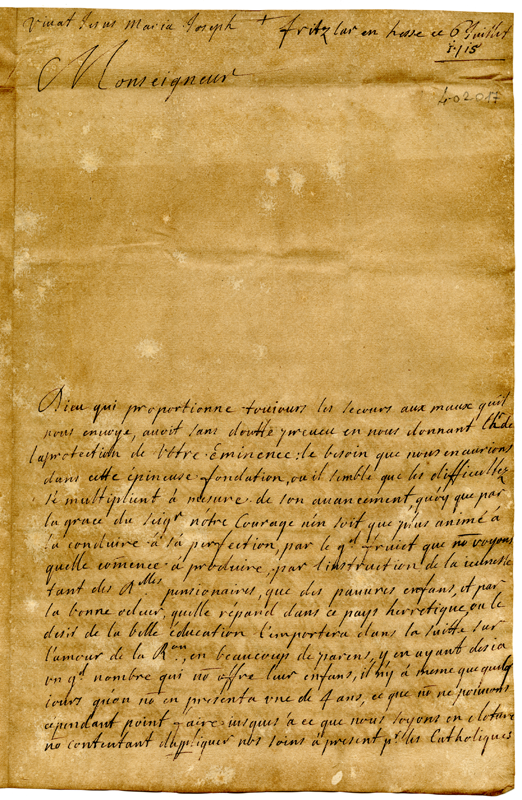 Vivat Jesus Maria Joseph + fritzlar en hesse ce 6 Juillet
1715
Monseigneur
402017
Dieu qui proportionne toujours les secours aux maux quil
nous envoye, auoit sans doutte preueu en nous donnant
la protection de Vôtre Eminence: le besoin que nous en aurions
dans cette épineuse fondation, ou il semble que les difficultez
se multiplient à mesure de son auancement, quoy que par
la grace du Seigr notre Courage n'en soit que plus animé à
la conduire à sa perfection, par le gd fruict que no voyons
quelle comence à produire, par l'instruction de la ieunesse
tant des Dlles pensionaires, que des pauures enfans, et par
la bonne odeur, quelle répand dans ce pays herretique, ou le
desir de la belle éducation l'emportera dans la suitte sur
l'amour de la Ron, en beaucoup de parens, y en ayant desia
vn gd nombre qui no offre leur enfans, il n'y à meme que quelq
iours qu'on no en presenta vne de 4 ans, ce que no ne pouuons
cependant point faire iusques a ce que nous soyons en cloture
no contentant d'appliquer nos soins à present pr les Catholiques